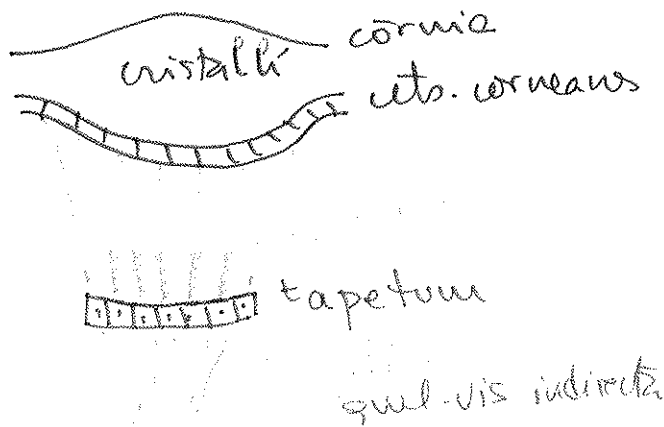 còrnia
cristal·lí
cèls. corneanes
tapetum
qüel-vis indirecta